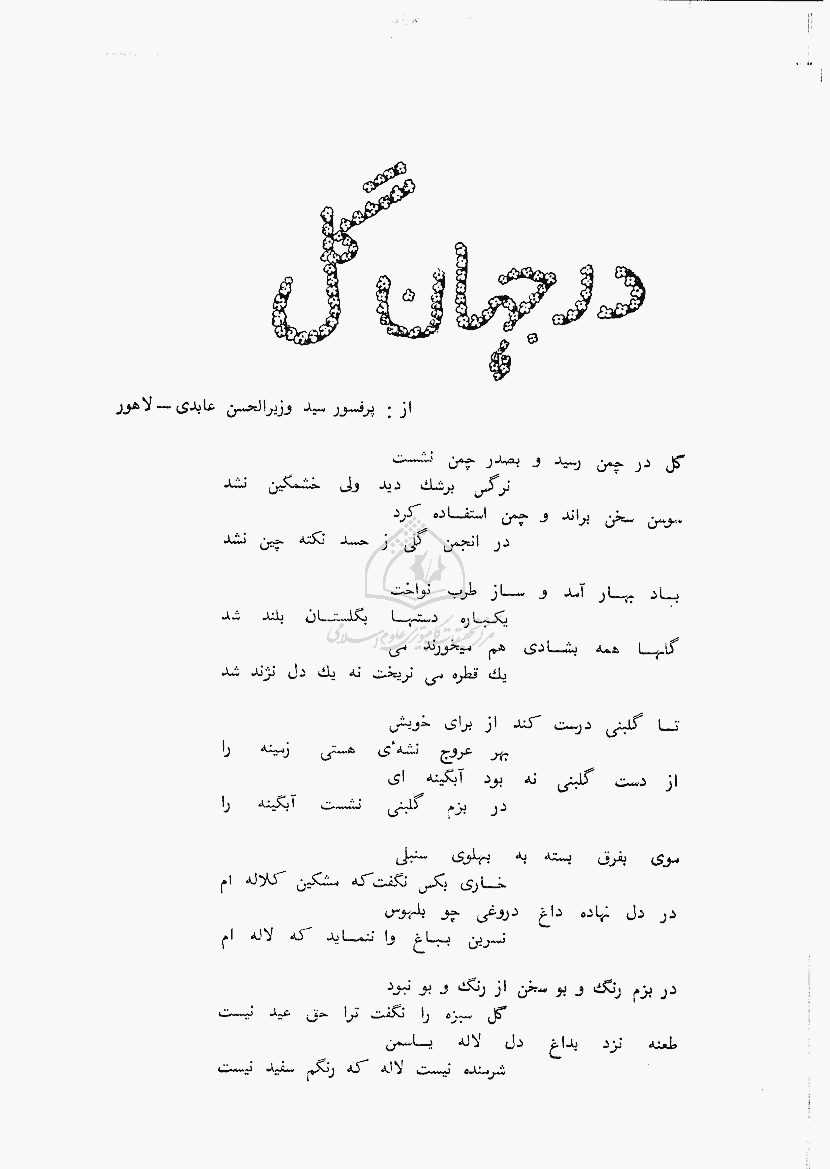 در جهان گل
از : پرفسور سید وزیرالحسن عابدی – لاهور
گل در چمن رسید و بصدر چمن نشست
نرگس برشك دید ولی خشمگین نشد
سوسن سخن براند و چمن استفاده کرد
در انجمن گلی ز حسد نکته چین نشد
باد بهار آمد و ساز طرب نواخت
یکباره دستها بگلستان بلند شد
گلها همه بشادی هم میخورند می
یك قطره می نریخت نه یك دل نژند شد
تا گلبنی درست کند از برای خویش
بهر عروج نشهٔی هستی زمینه را
از دست گلبنی نه بود آبگینه ای
در بزم گلبنی نشست آبگینه را
موی بفرق بسته به پهلوی سنبلی
خاری بکس نگفت که مشکین کلاله ام
در دل نهاده داغ دروغی چو بلهوس
نسرین بباغ وا ننماید که لاله ام
در بزم رنگ و بو سخن از رنگ و بو نبود
گل سبزه را نگفت ترا حق عید نیست
طعنه نزد بداغ دل لاله یاسمن
شرمنده نیست لاله که رنگم سفید نیست
مرکز تحقیقات کامپیوتری علوم اسلامی